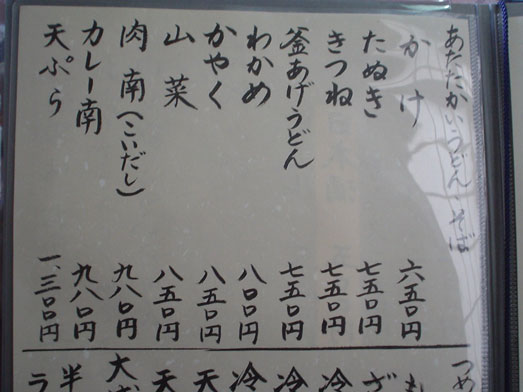 あたたかいうどん・そば
かけ 六五〇円
たぬき 七五〇円
きつね 七五〇円
釜あげうどん 七五〇円
わかめ 八〇〇円
かやく 八五〇円
山菜 八五〇円
肉南(こいだし) 九八〇円
カレー南 九八〇円
天ぷら 一、三〇〇円
つめ
も
ざ
冷
冷
冷
天
天
大
半
ラ